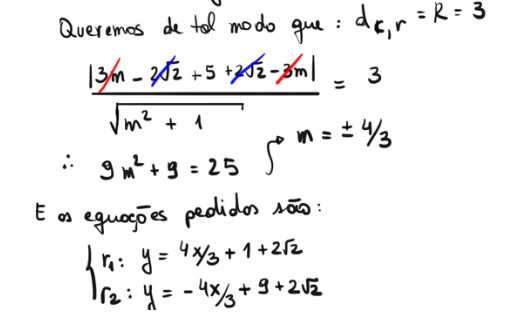 Queremos de tal modo que: d_{c,r} = R = 3
|3m - 2√2 + 5 + 2√2 - 3m| / √(m² + 1) = 3
∴ 9m² + 9 = 25 → m = ± 4/3
E as equações pedidas são:
r₁: y = 4x/3 + 1 + 2√2
r₂: y = -4x/3 + 9 + 2√2